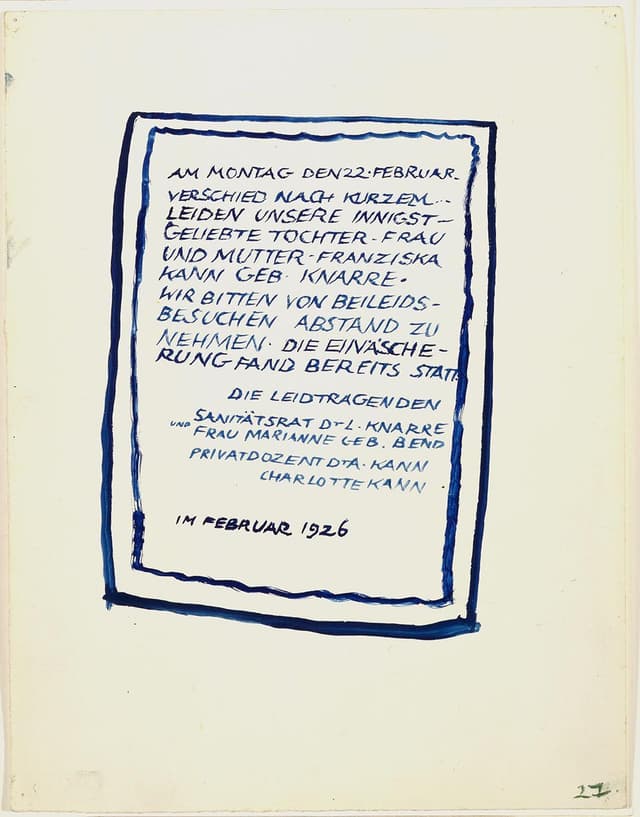 AM MONTAG DEN 22. FEBRUAR.
VERSCHIED NACH KURZEM...
LEIDEN UNSERE INNIGST-
GELIEBTE TOCHTER - FRAU
UND MUTTER - FRANZISKA
KANN GEB. KNARRE.
WIR BITTEN VON BEILEIDS-
BESUCHEN ABSTAND ZU
NEHMEN. DIE EINÄSCHE-
RUNG FAND BEREITS STATT.
DIE LEIDTRAGENDEN
SANITÄTSRAT Dr L. KNARRE
UND FRAU MARIANNE GEB. BEND
PRIVATDOZENT Dr A. KANN
CHARLOTTE KANN
IM FEBRUAR 1926
27.